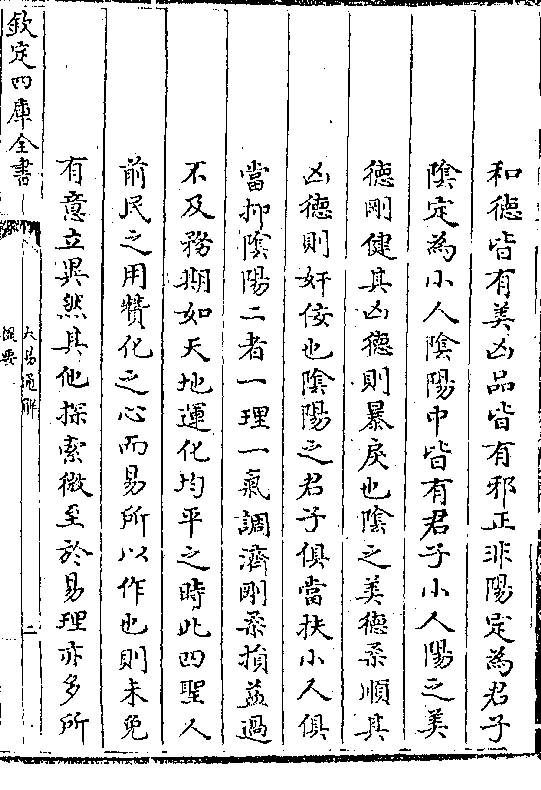 和德皆有美凶品皆有邪正非陽定為君子
陰定為小人陰陽中皆有君子小人陽之美
德剛健其凶德則暴戾也陰之美德柔順其
凶德則奸佞也陰陽之君子俱當扶小人俱
當抑陰陽二者一理一氣調濟剛柔損益過
不及務期如天地運化均平之時此四聖人
前民之用贊化之心而易所以作也則未免
有意立異然其他探索微至於易理亦多所
欽定四庫全書
大易通解
提要
二